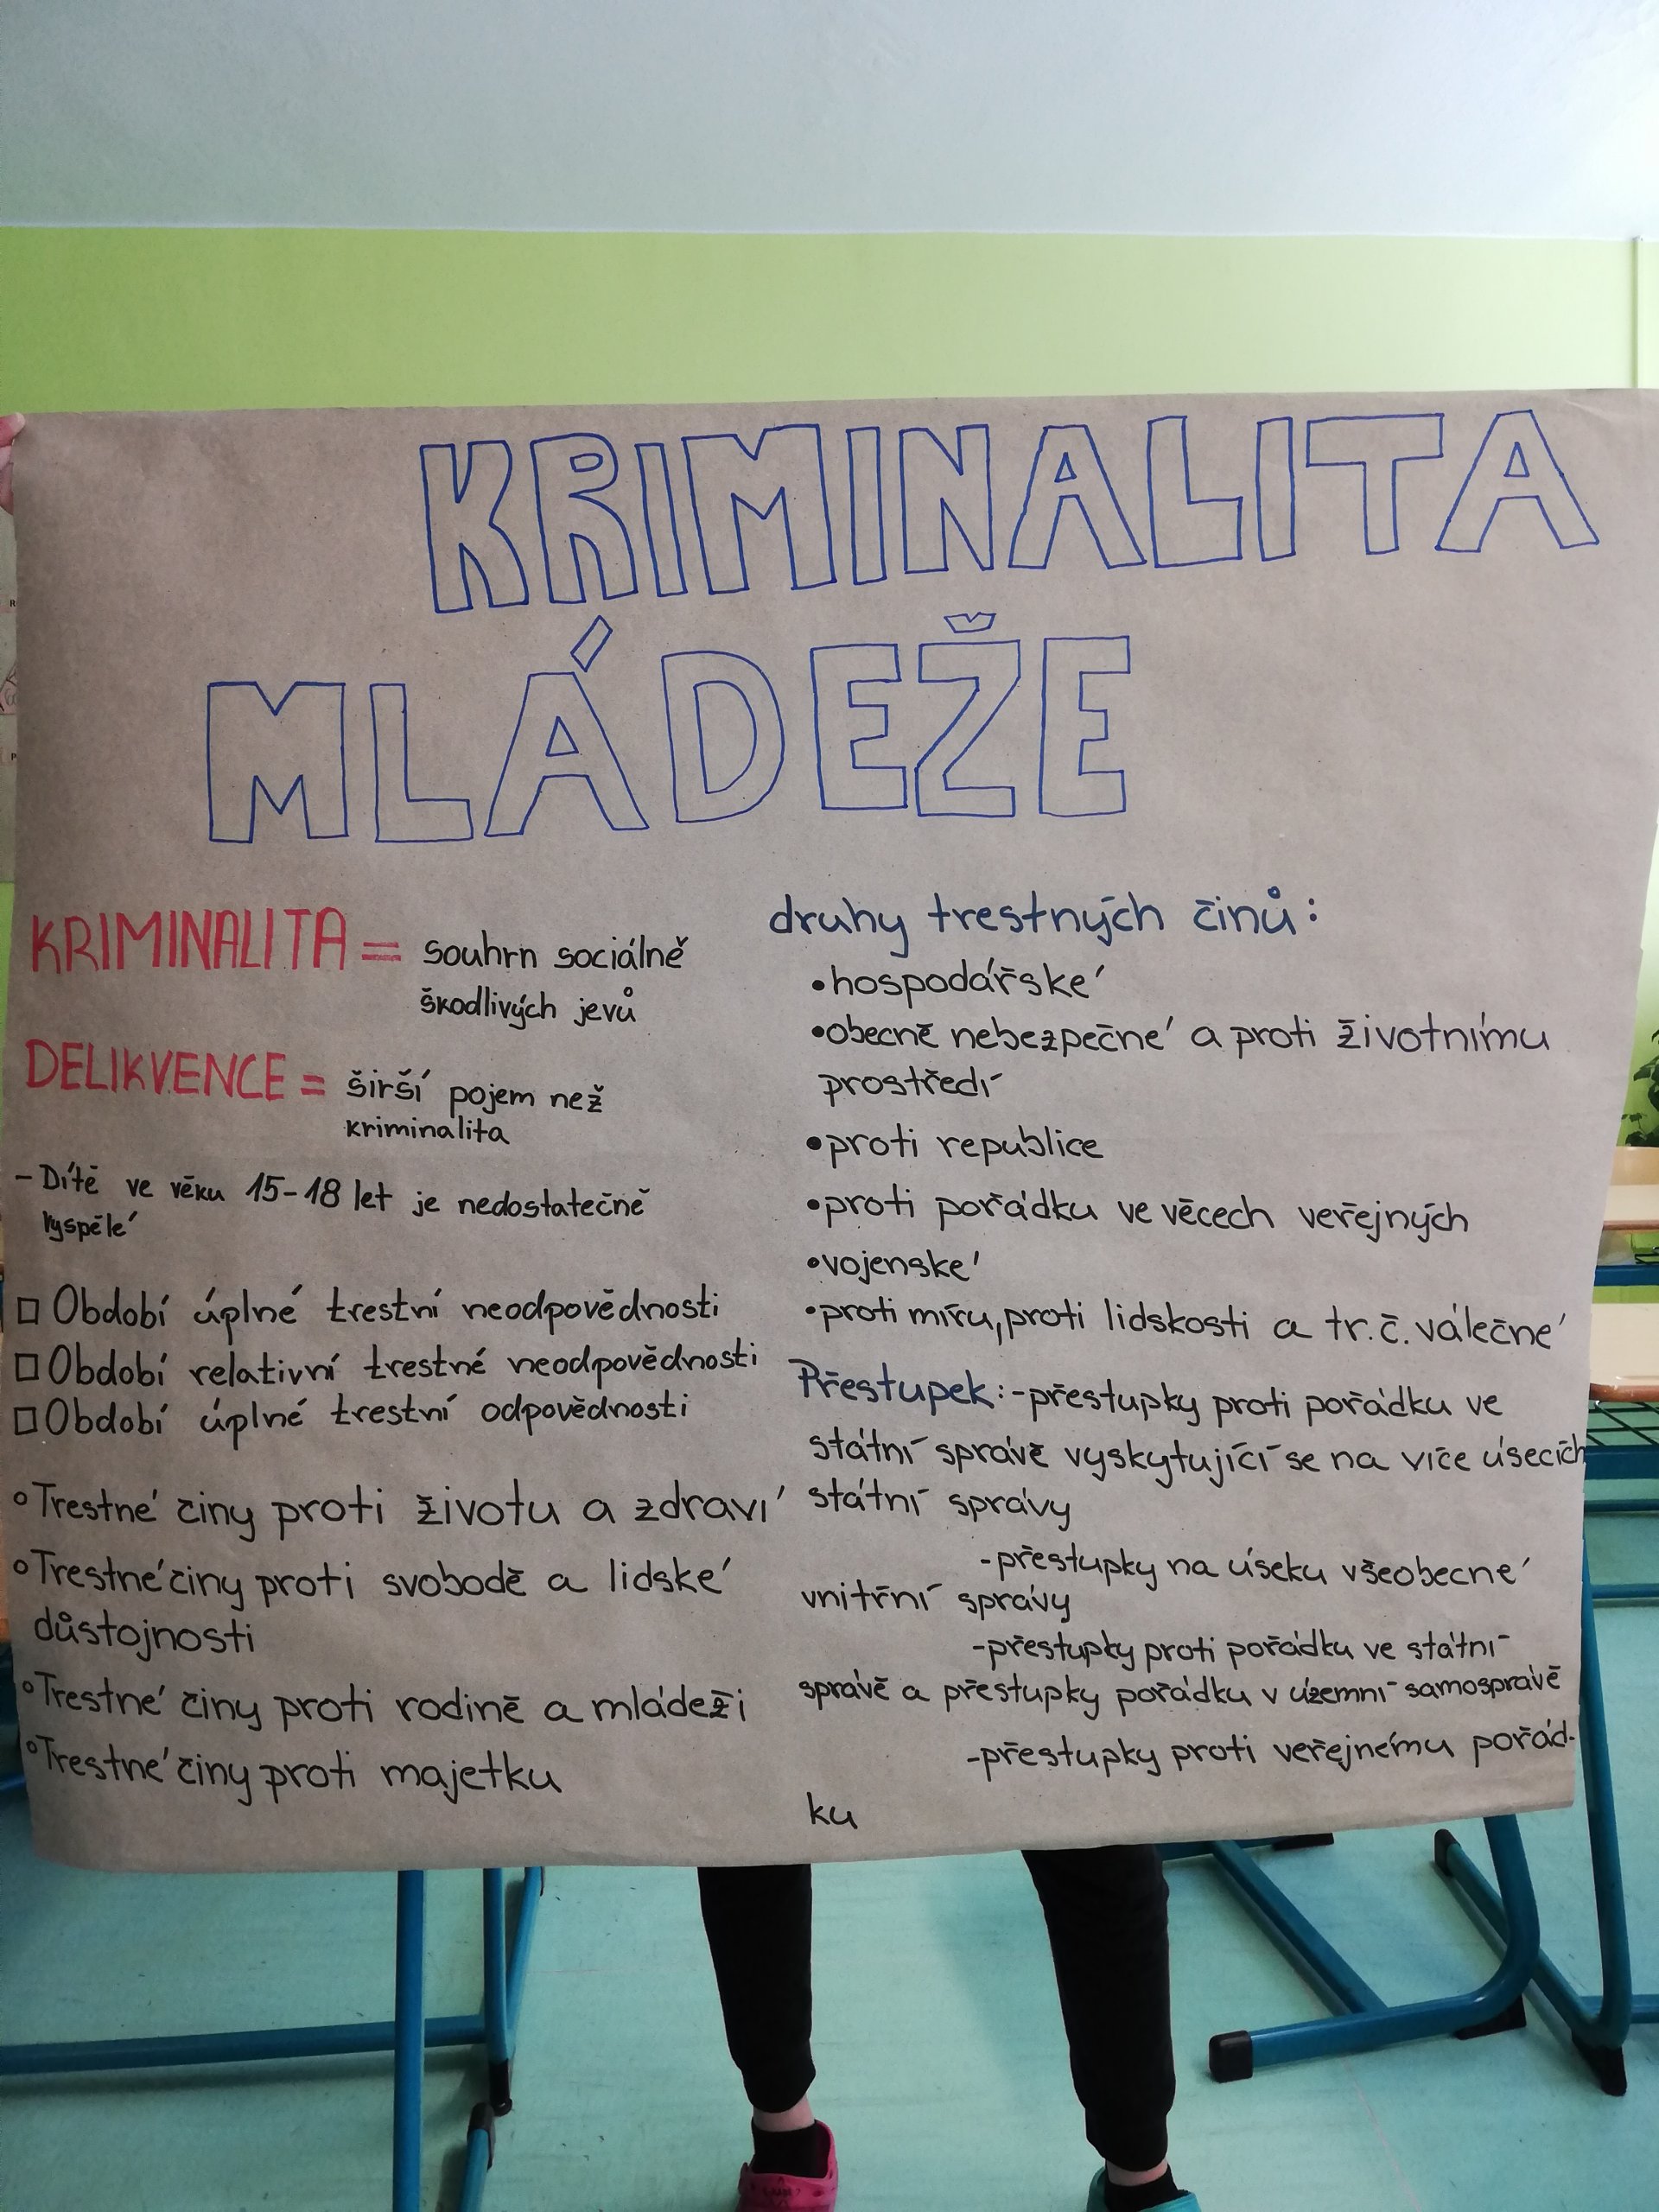 KRIMINALITA
MLÁDEŽE
KRIMINALITA = souhrn sociálně
škodlivých jevů
DELIKVENCE = širší pojem než
kriminalita
- Dítě ve věku 15-18 let je nedostatečně
vyspělé
□ Období úplné trestní neodpovědnosti
□ Období relativní trestné neodpovědnosti
□ Období úplné trestní odpovědnosti
° Trestné činy proti životu a zdraví
° Trestné činy proti svobodě a lidské
důstojnosti
° Trestné činy proti rodině a mládeži
° Trestné činy proti majetku
druhy trestných činů:
• hospodářské
• obecně nebezpečné a proti životnímu
prostředí
• proti republice
• proti pořádku ve věcech veřejných
• vojenské
• proti míru, proti lidskosti a tr.č. válečné
Přestupek: - přestupky proti pořádku ve
státní správě vyskytující se na více úsecích
státní správy
- přestupky na úseku všeobecné
vnitřní správy
- přestupky proti pořádku ve státní
správě a přestupky pořádku v územní samosprávě
- přestupky proti veřejnému pořád-
ku